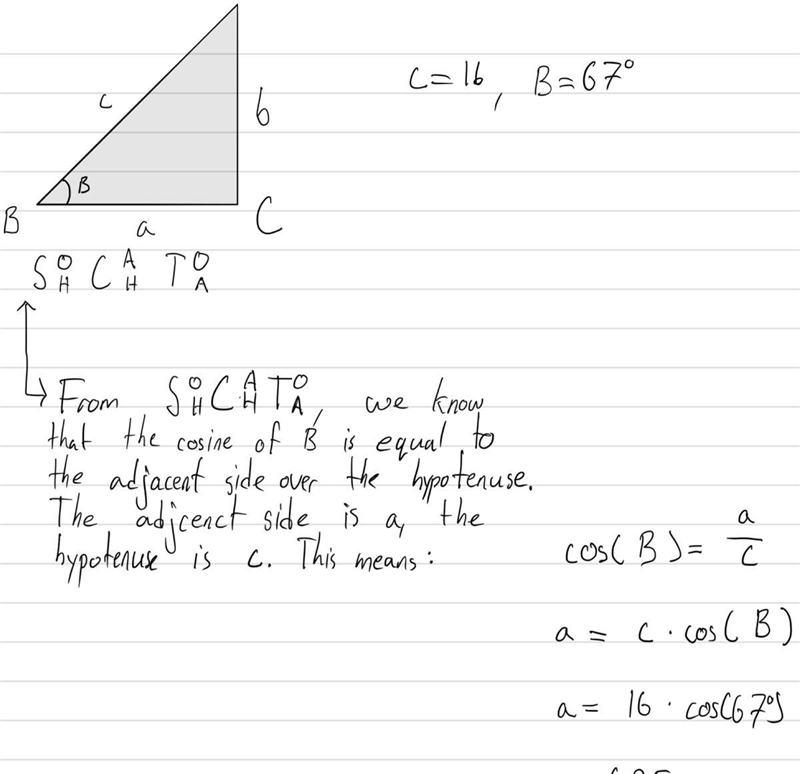 c
b
c=16, B=67°
B
B
a
C
S O/H C A/H T O/A
From S O/H C A/H T O/A, we know
that the cosine of B is equal to
the adjacent side over the hypotenuse.
The adjcenct side is a, the
hypotenuse is c. This means:
cos(B) = a/c
a = c · cos(B)
a = 16 · cos(67°)